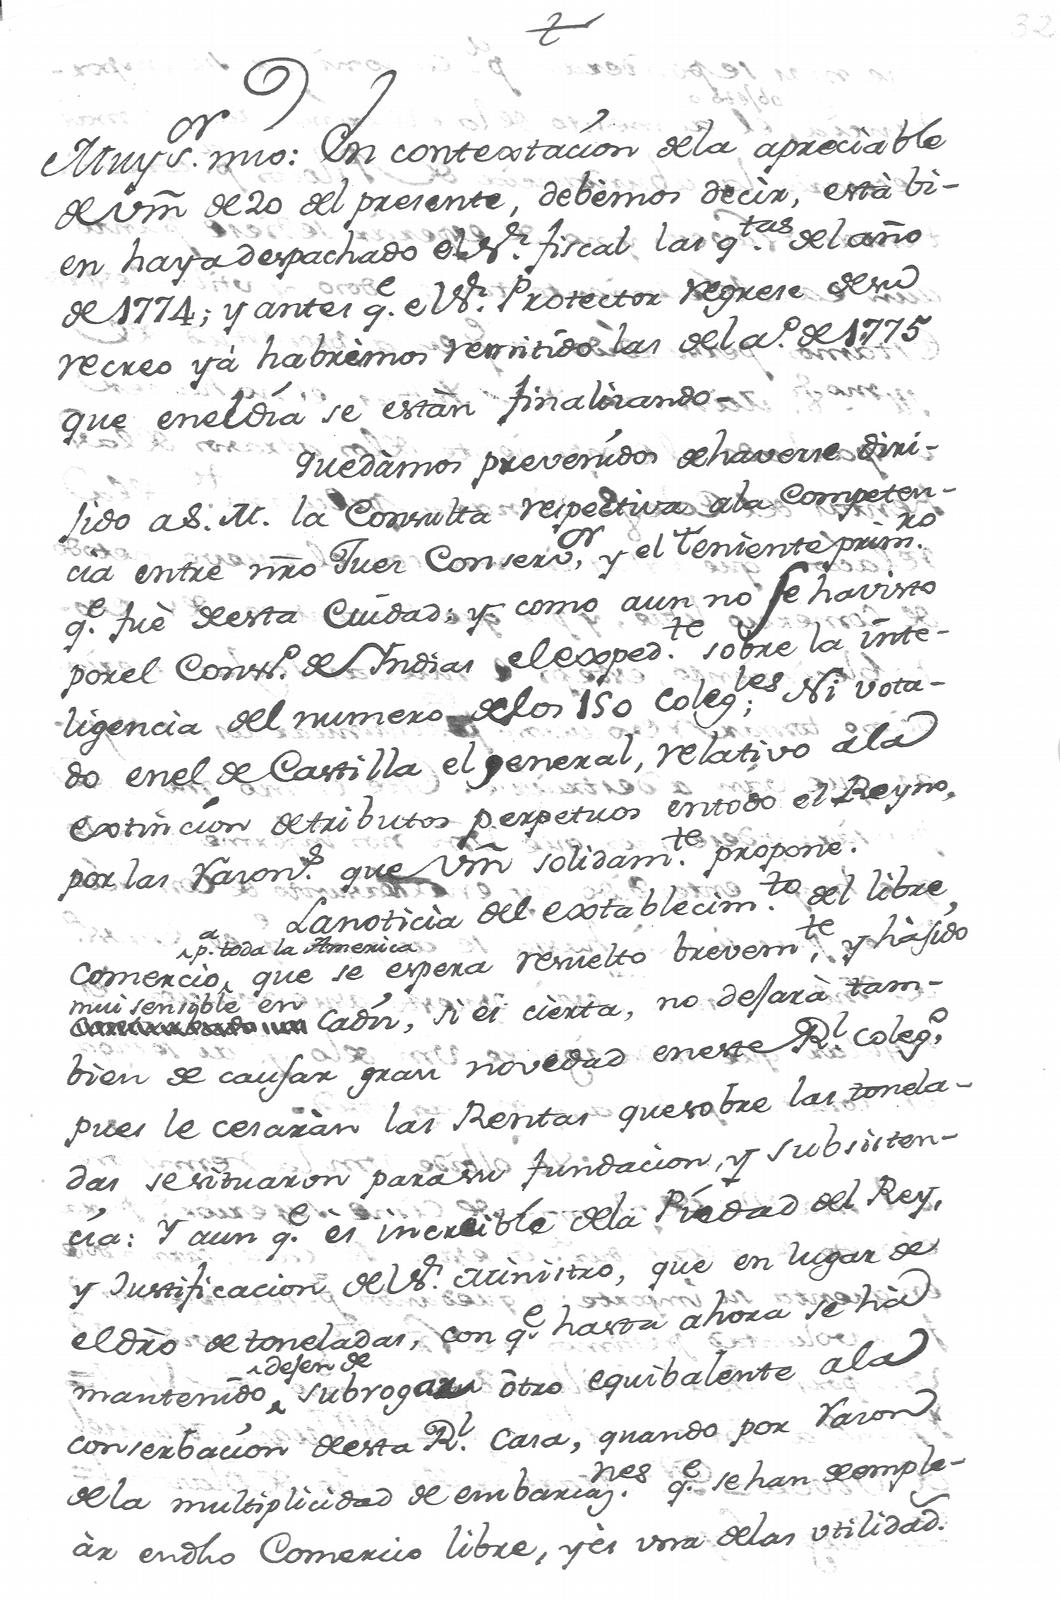 32
Muy S.or mio: En contextacion dela apreciable
de Vm̃ de 20 del presente, debèmos decir, està bi-
en haya despachado el S.r fiscal las q.tas del año
de 1774; y antes q.e el S.r Protector regrese de su
recreo yà habrèmos remitido las del a.o de 1775
que enel dia se estàn finalizando-
Quedàmos prevenidos de haverse diri-
jido a S. M. la Consulta respectiva ala Competen-
cia entre nr̃o Juez Conserv.or, y el Teniente prim.ro
q.e fuè desta Ciudad; y como aun no se ha visto
por el Cons.o de Indias, el exped.te sobre la inte-
ligencia del numero delos 150 coleg.les; Ni vota-
do enel de Castilla el general, relativo ala
extincion de tributos perpetuos entodo el Reyno,
por las razon.s que Vm̃ solidam.te propone.
La noticia del extablecim.to del libre
p.a toda la America
Comercio, que se espera resuelto brevem.te, y hà sido
mui sensible en
Cadiz, si es cierta, no dejarà tam-
bien de causar gran novedad en este R.l coleg.o
pues le cesaràn las Rentas que sobre las tonela-
das se situaron para su fundacion, y subsisten-
cia: Y aun q.e es increible dela Piedad del Rey,
y Justificacion del S.r Ministro, que en lugar de
el dr̃o de toneladas, con q.e hasta ahora se hà
dejen de
mantenido, subrogar òtro equibalente ala
conserbacion desta R.l Casa, quando por razon
dela multiplicidad de embarcaz.nes q.e se han de emple-
àr en dho Comercio libre, y ès una delas utilidad.s